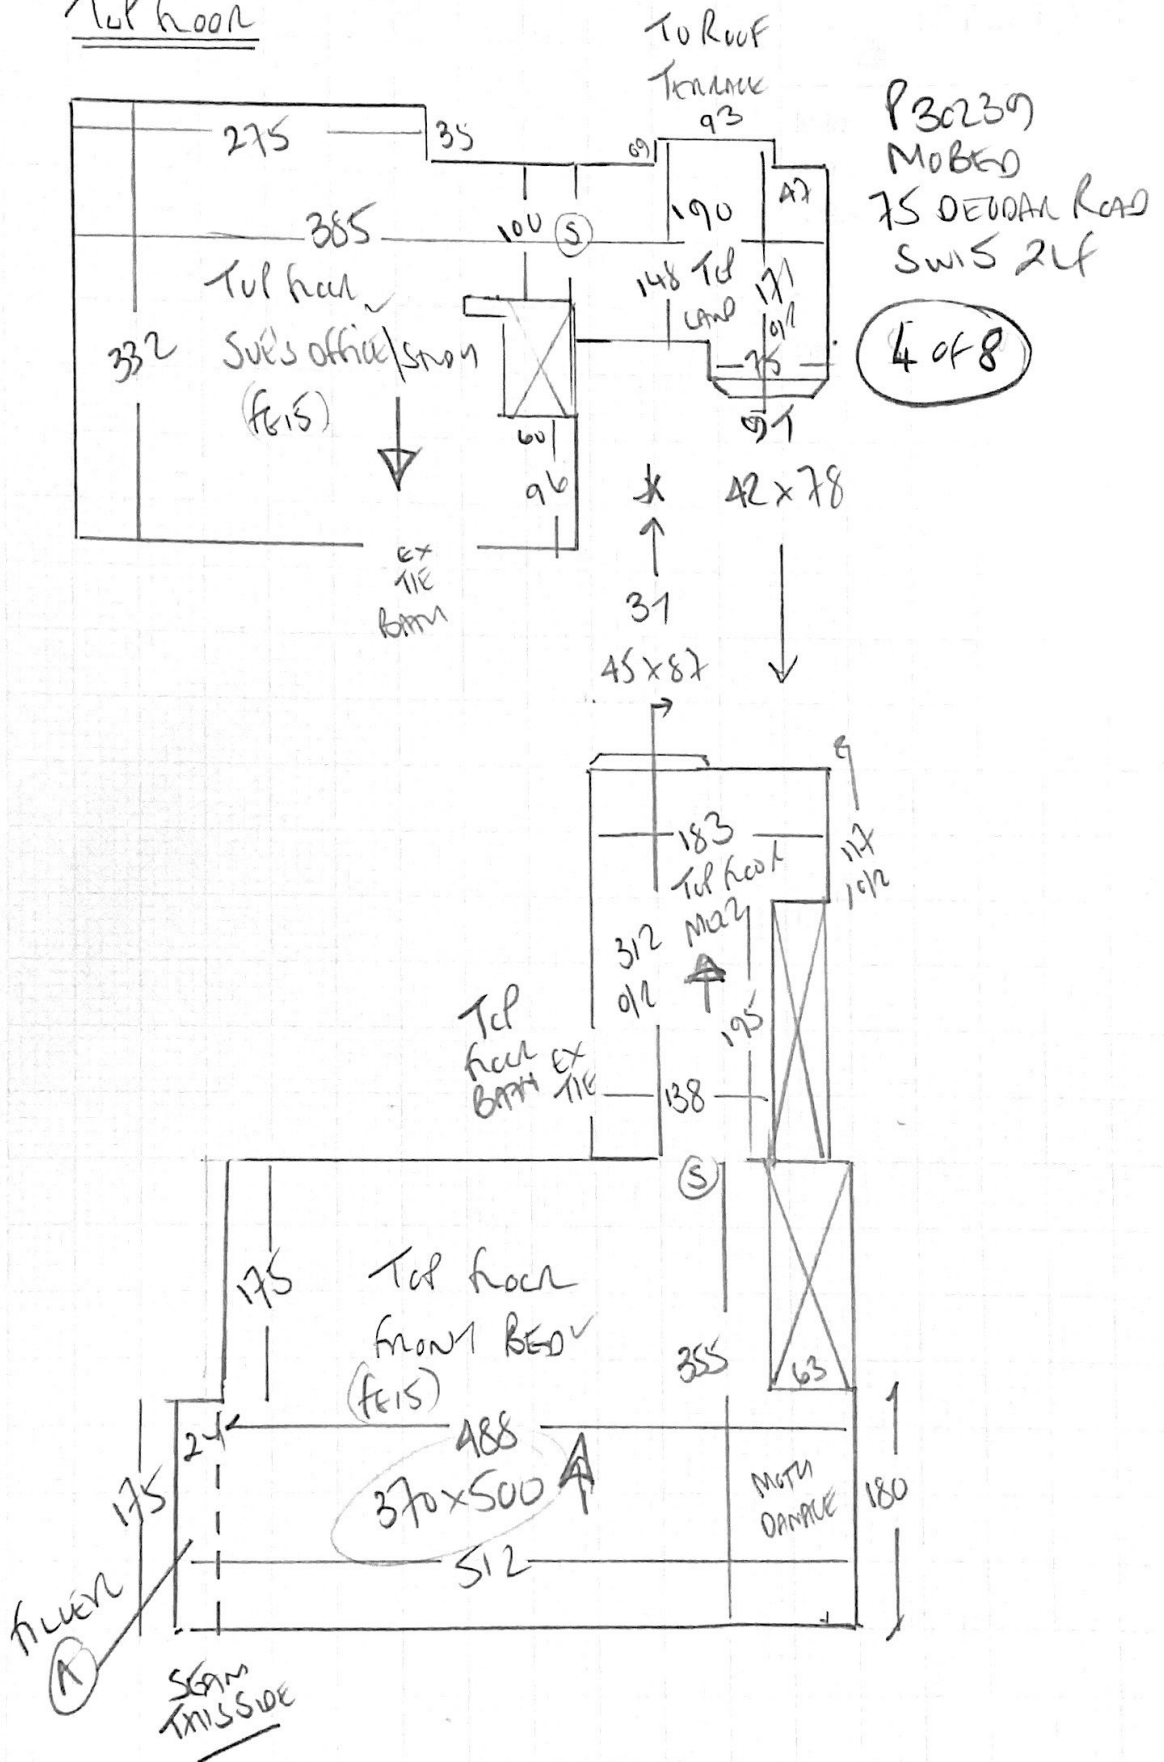 TOP FLOOR
TO ROOF
TERRACE
93
P30239
MOBED
75 DEODAR ROAD
SW15 2LF
4 OF 8
275
35
69
47
385
100
S
190
148
TOP
LAND
171
O/R
75
TOP FLOOR
SUE'S OFFICE/STUDY
(FE15)
332
60
96
9T
42 x 78
EX
TIE
BATH
31
45 x 87
183
117
O/R
TOP FLOOR
312
O/R
195
TOP
FLOOR
BATH
EX
TIE
138
S
175
TOP FLOOR
FRONT BED
(FE15)
355
63
24
488
370x500
175
MOTH
DAMAGE
180
512
FILLER
A
SEAM
THIS SIDE